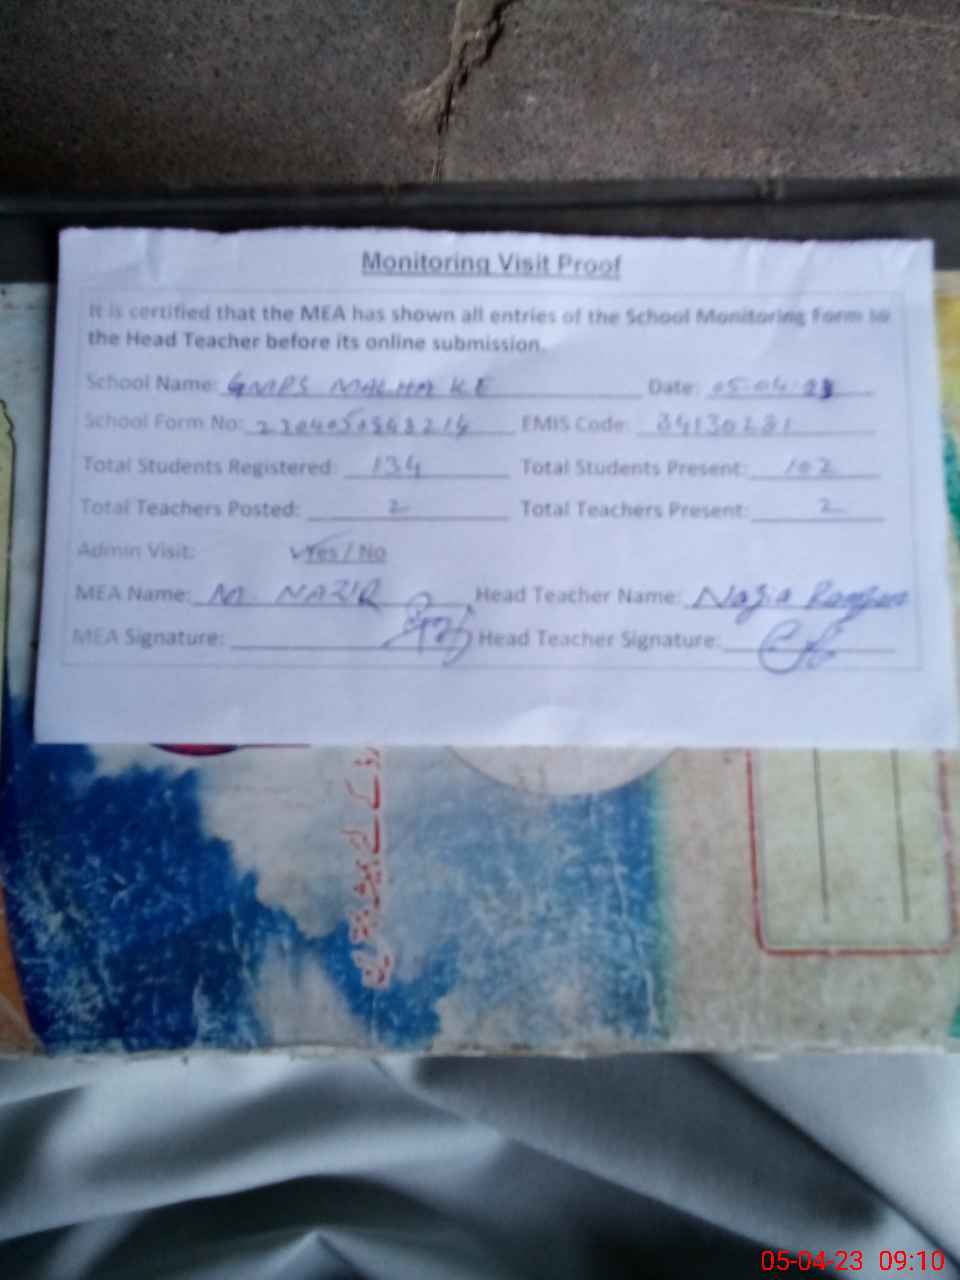 Monitoring Visit Proof
It is certified that the MEA has shown all entries of the School Monitoring Form to
the Head Teacher before its online submission.
School Name: GMPS MALHA KE Date: 05-04-23
School Form No: EMIS Code: 34130281
Total Students Registered: 134 Total Students Present: 102
Total Teachers Posted: 2 Total Teachers Present: 2
Admin Visit: Yes / No
MEA Name: M. NAZIR Head Teacher Name: Nazia
MEA Signature: Head Teacher Signature:
05-04-23 09:10